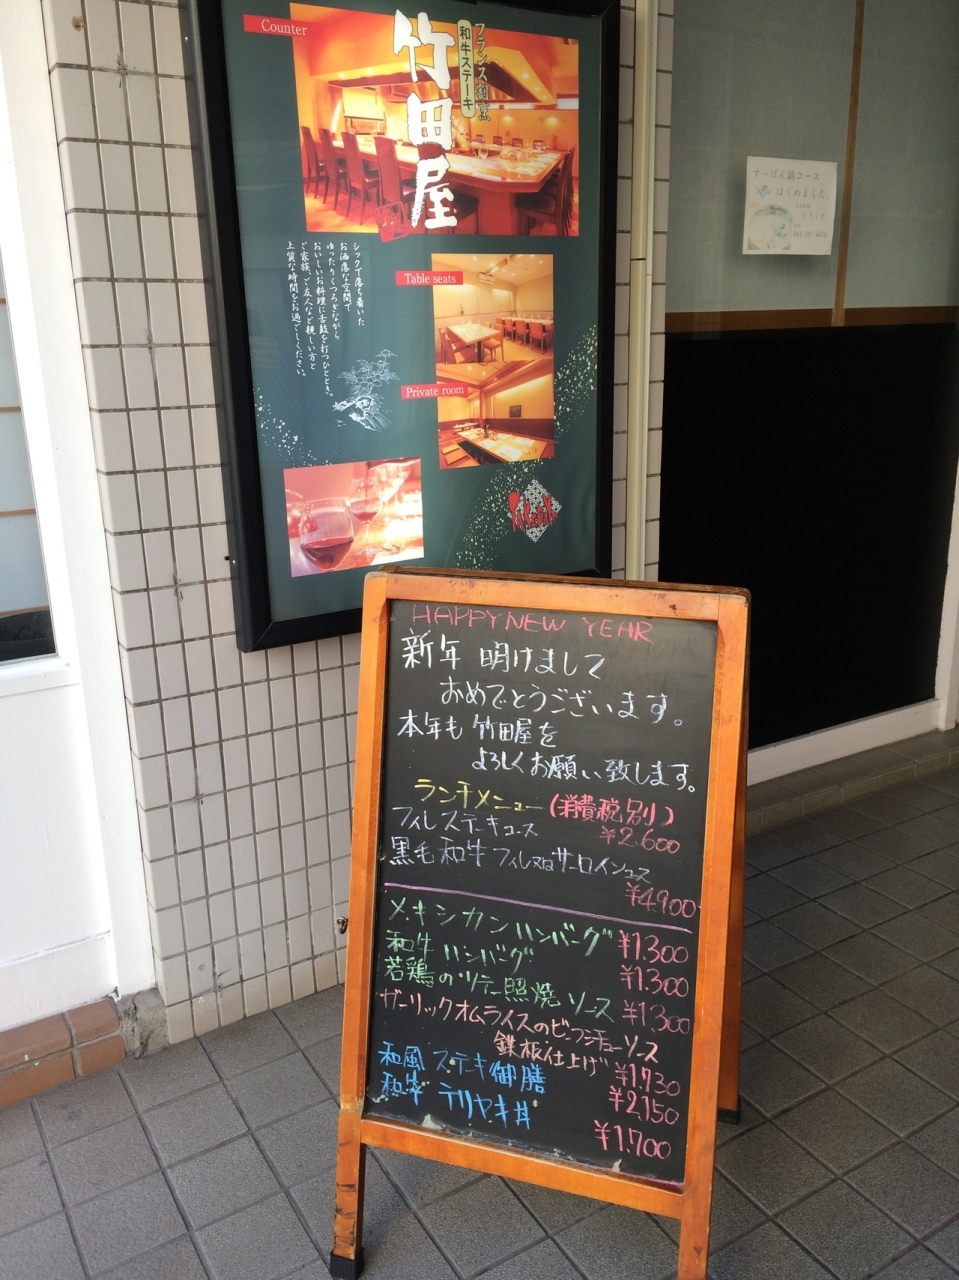 Counter
フランス懐石
和牛ステーキ
竹田屋
シックで落ち着いた
お洒落な空間で
ゆったりくつろぎながら
おいしいお料理に舌鼓を打つひととき。
ご家族、ご友人など親しい方と
上質な時間をお過ごしください。
Table seats
Private room
すっぽん鍋コース
はじめました。
HAPPY NEW YEAR
新年 明けまして
おめでとうございます。
本年も 竹田屋を
よろしくお願い致します。
ランチメニュー (消費税別)
フィレステーキコース ¥2.600
黒毛和牛 フィレ又はサーロインコース
¥4.900
メキシカンハンバーグ ¥1.300
和牛 ハンバーグ ¥1.300
若鶏のソテー照焼ソース ¥1.300
ガーリックオムライスのビーフシチューソース
鉄板仕上げ ¥1.730
和風 ステーキ御膳 ¥2.150
和牛 テリヤキ丼 ¥1.700